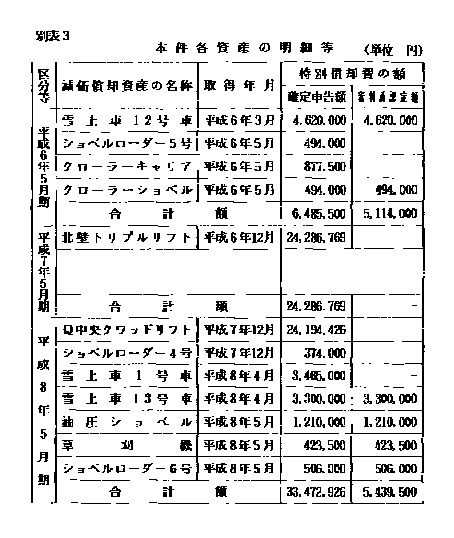 別表3
本件各資産の明細等 (単位 円)
区分等 減価償却資産の名称 取得年月 特別償却費の額
確定申告額 審判所認定額
平成6年5月期
雪上車12号車 平成6年3月 4,620,000 4,620,000
ショベルローダー5号 平成6年5月 494,000
クローラーキャリア 平成6年5月 877,500
クローラーショベル 平成6年5月 494,000 494,000
合計額 6,485,500 5,114,000
平成7年5月期
北壁トリプルリフト 平成6年12月 24,286,769
合計額 24,286,769 -
平成8年5月期
中央クワッドリフト 平成7年12月 24,194,426
ショベルローダー4号 平成7年12月 374,000
雪上車1号車 平成8年4月 3,465,000
雪上車13号車 平成8年4月 3,300,000 3,300,000
油圧ショベル 平成8年5月 1,210,000 1,210,000
草刈機 平成8年5月 423,500 423,500
ショベルローダー6号 平成8年5月 506,000 506,000
合計額 33,472,926 5,439,500